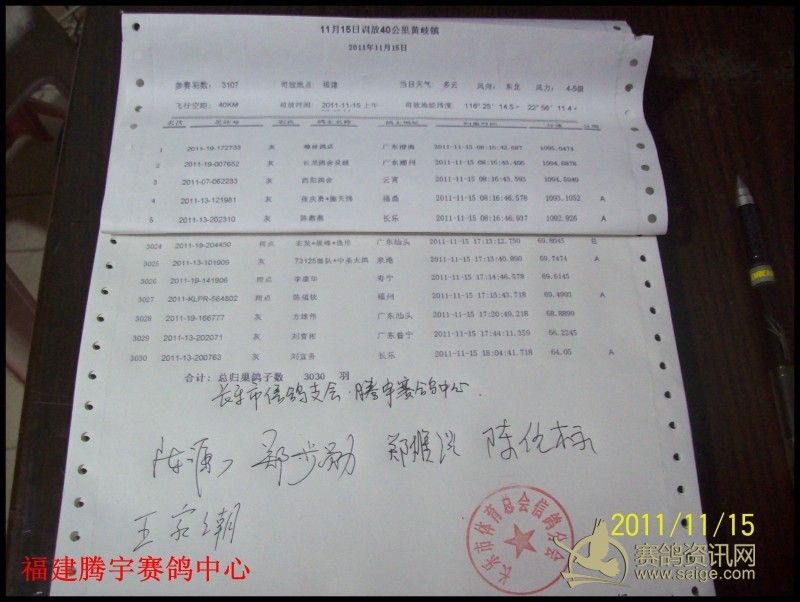 11月15日训放40公里黄岐镇
2011年11月15日
参赛羽数: 3107 司放地点: 福建 当日天气: 多云 风向: 东北 风力: 4-5级
飞行空距: 40KM 司放时间: 2011-11-15 上午 司放地经纬度: 116° 25′ 14.5″ 22° 56′ 11.4″
名次 足环号 羽色 鸽主名称 鸽主地址 归巢时间 分速
1 2011-19-172733 灰 广东澄海 2011-11-15 08:16:42.687 1095.0474
2 2011-19-007652 灰 广东潮州 2011-11-15 08:16:43.406 1094.6878
3 2011-07-062233 灰 云霄 2011-11-15 08:16:43.593 1094.5940
4 2011-13-121981 灰 2011-11-15 08:16:46.578 1093.1052 A
5 2011-13-202310 灰 陈惠惠 长乐 2011-11-15 08:16:46.937 1092.926 A
3024 2011-19-204450 雨点 广东汕头 2011-11-15 17:13:12.750 69.8045 B
3025 2011-13-101909 灰 2011-11-15 17:13:40.890 69.7474 A
3026 2011-19-141906 雨点 李康华 寿宁 2011-11-15 17:14:46.578 69.6145
3027 2011-KLPR-564802 雨点 福州 2011-11-15 17:15:43.718 69.4993 A
3028 2011-19-166777 灰 方雄伟 广东汕头 2011-11-15 17:20:49.218 68.8890
3029 2011-13-202071 灰 广东普宁 2011-11-15 17:44:11.359 66.2245
3030 2011-13-200763 灰 长乐 2011-11-15 18:04:41.718 64.05 A
合计: 总归巢鸽子数 3030 羽
长乐市信鸽支会·腾宇赛鸽中心
郑步勋
王
长乐市体育总会信鸽分会
2011/11/15
福建腾宇赛鸽中心
赛鸽资讯网
www.saige.com